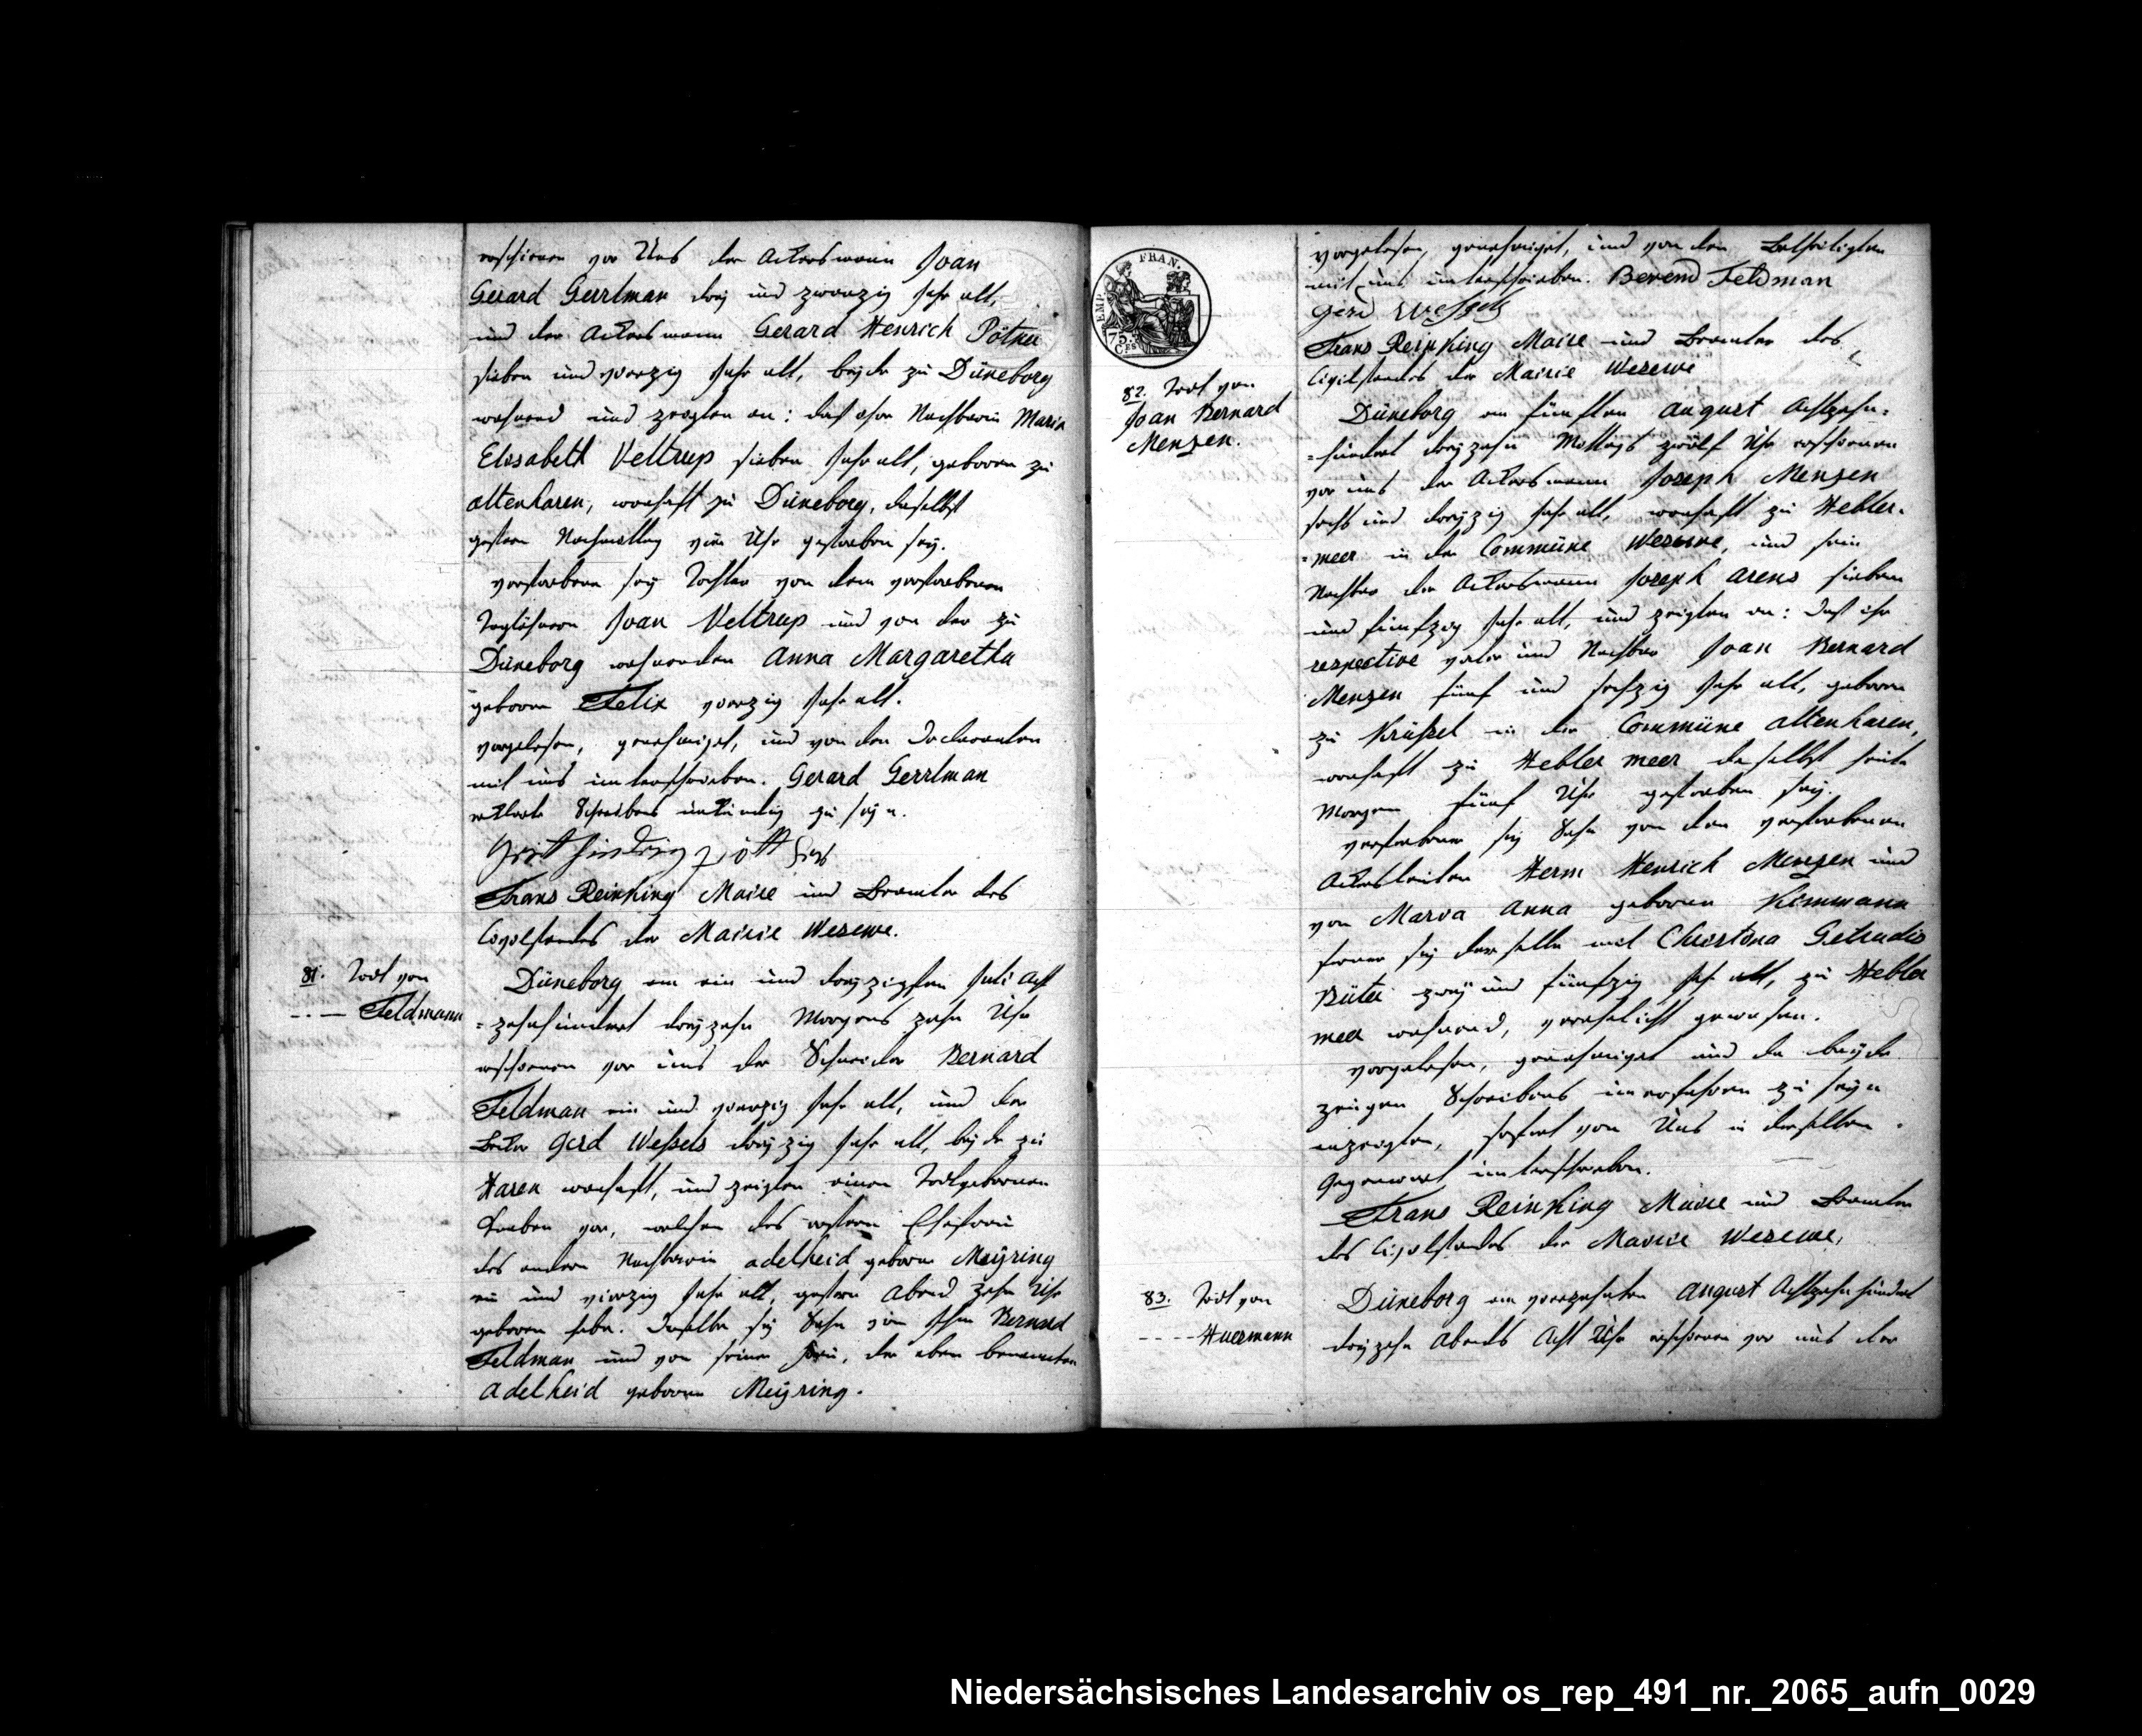 erschienen vor Uns der Ackersmann Joan
Gerard Gerrlman drey und zwanzig Jahr alt,
und der Ackersmann Gerard Henrich Pötker
sieben und vierzig Jahr alt, beyde zu Düneborg
wohnend und zeigten an: daß ihre Nachbarin Maria
Elisabeth Veltrup sieben Jahr alt, geboren zu
altenharen, wohnhaft zu Düneborg, daselbst
gestern Nachmittag vier Uhr gestorben sey.
verstorbene sey Tochter von dem verstorbenen
Taglöhnern Joan Veltrup und von der zu
Düneborg wohnenden Anna Margaretha
geboren Felix vierzig Jahr alt.
vorgelesen, genehmiget, und von den Declaranten
mit uns unterschrieben. Gerard Gerrlman
erklarte Schreibens unkundig zu seyn.
Frans Reinking Maire und Beamter des
Civilstandes der Mairie Wesewe.
81. Todt von
- - — Feldmann
Düneborg am ein und dreyzigsten Juli Acht
=zehnhundert dreyzehn Morgens zehn Uhr
erschienen vor uns der Schneider Bernard
Feldman ein und vierzig Jahr alt, und der
Gerd Weßels dreyzig Jahr alt, beyde zu
Haren wohnhaft, und zeigten einen Todtgebornen
Knaben vor, welchen des erstern Ehefrau
des andern Nachbarin adelheid geborne Meÿring
ein und vierzig Jahr alt, gestern Abend zehn Uhr
geboren habe. Dasselbe sey Sohn von Ihm Bernard
Feldman und von seiner Frau, der oben benannten
adelheid geboren Meÿring.
EMP. FRAN.
75. C.es
vorgelesen, genehmiget, und von den Betheiligten
mit uns unterschrieben. Berend Feldman
gerd Wessels
Frans Reinking Maire und Beamter des
Civilstandes der Mairie Wesewe
82. Todt von
Joan Bernard
Menzen.
Düneborg am fünften august Achtzehn=
=hundert dreyzehn Mittags zwölf Uhr erschienen
vor uns der Ackersmann Joseph Menzen
sechs und dreyzig Jahr alt, wohnhaft zu Hebler=
=meer in der Commüne Wesewe, und sein
Nachbar der Ackersmann Joseph arens sieben
und fünfzig Jahr alt, und zeigten an: daß ihr
respective vater und Nachbar Joan Bernard
Menzen fünf und sechzig Jahr alt, geboren
zu Krüßel in der Commüne altenharen,
wohnhaft zu Hebler meer daselbst heute
Morgen fünf Uhr gestorben sey.
verstorbener sey Sohn von den verstorbenen
Ackersleuten Herm Henrich Menzen und
von Maria Anna geboren Kimmann
ferner sey derselbe mit Christina Getrudis
Büter zwey und fünfzig Jahr alt, zu Hebler
meer wohnend, verehelicht gewesen.
vorgelesen, genehmiget und da beyde
zeugen Schreibens unerfahren zu seyn
anzeigten, sofort von Uns in derselben
Gegenwart unterschrieben.
Frans Reinking Maire und Beamter
des Civilstandes der Mairie Wesewe,
83. Todt von
- - - - Huermann
Düneborg am vierzehnten august Achtzehnhundert
dreyzehn Abends Acht Uhr erschienen vor uns der
Niedersächsisches Landesarchiv os_rep_491_nr._2065_aufn_0029